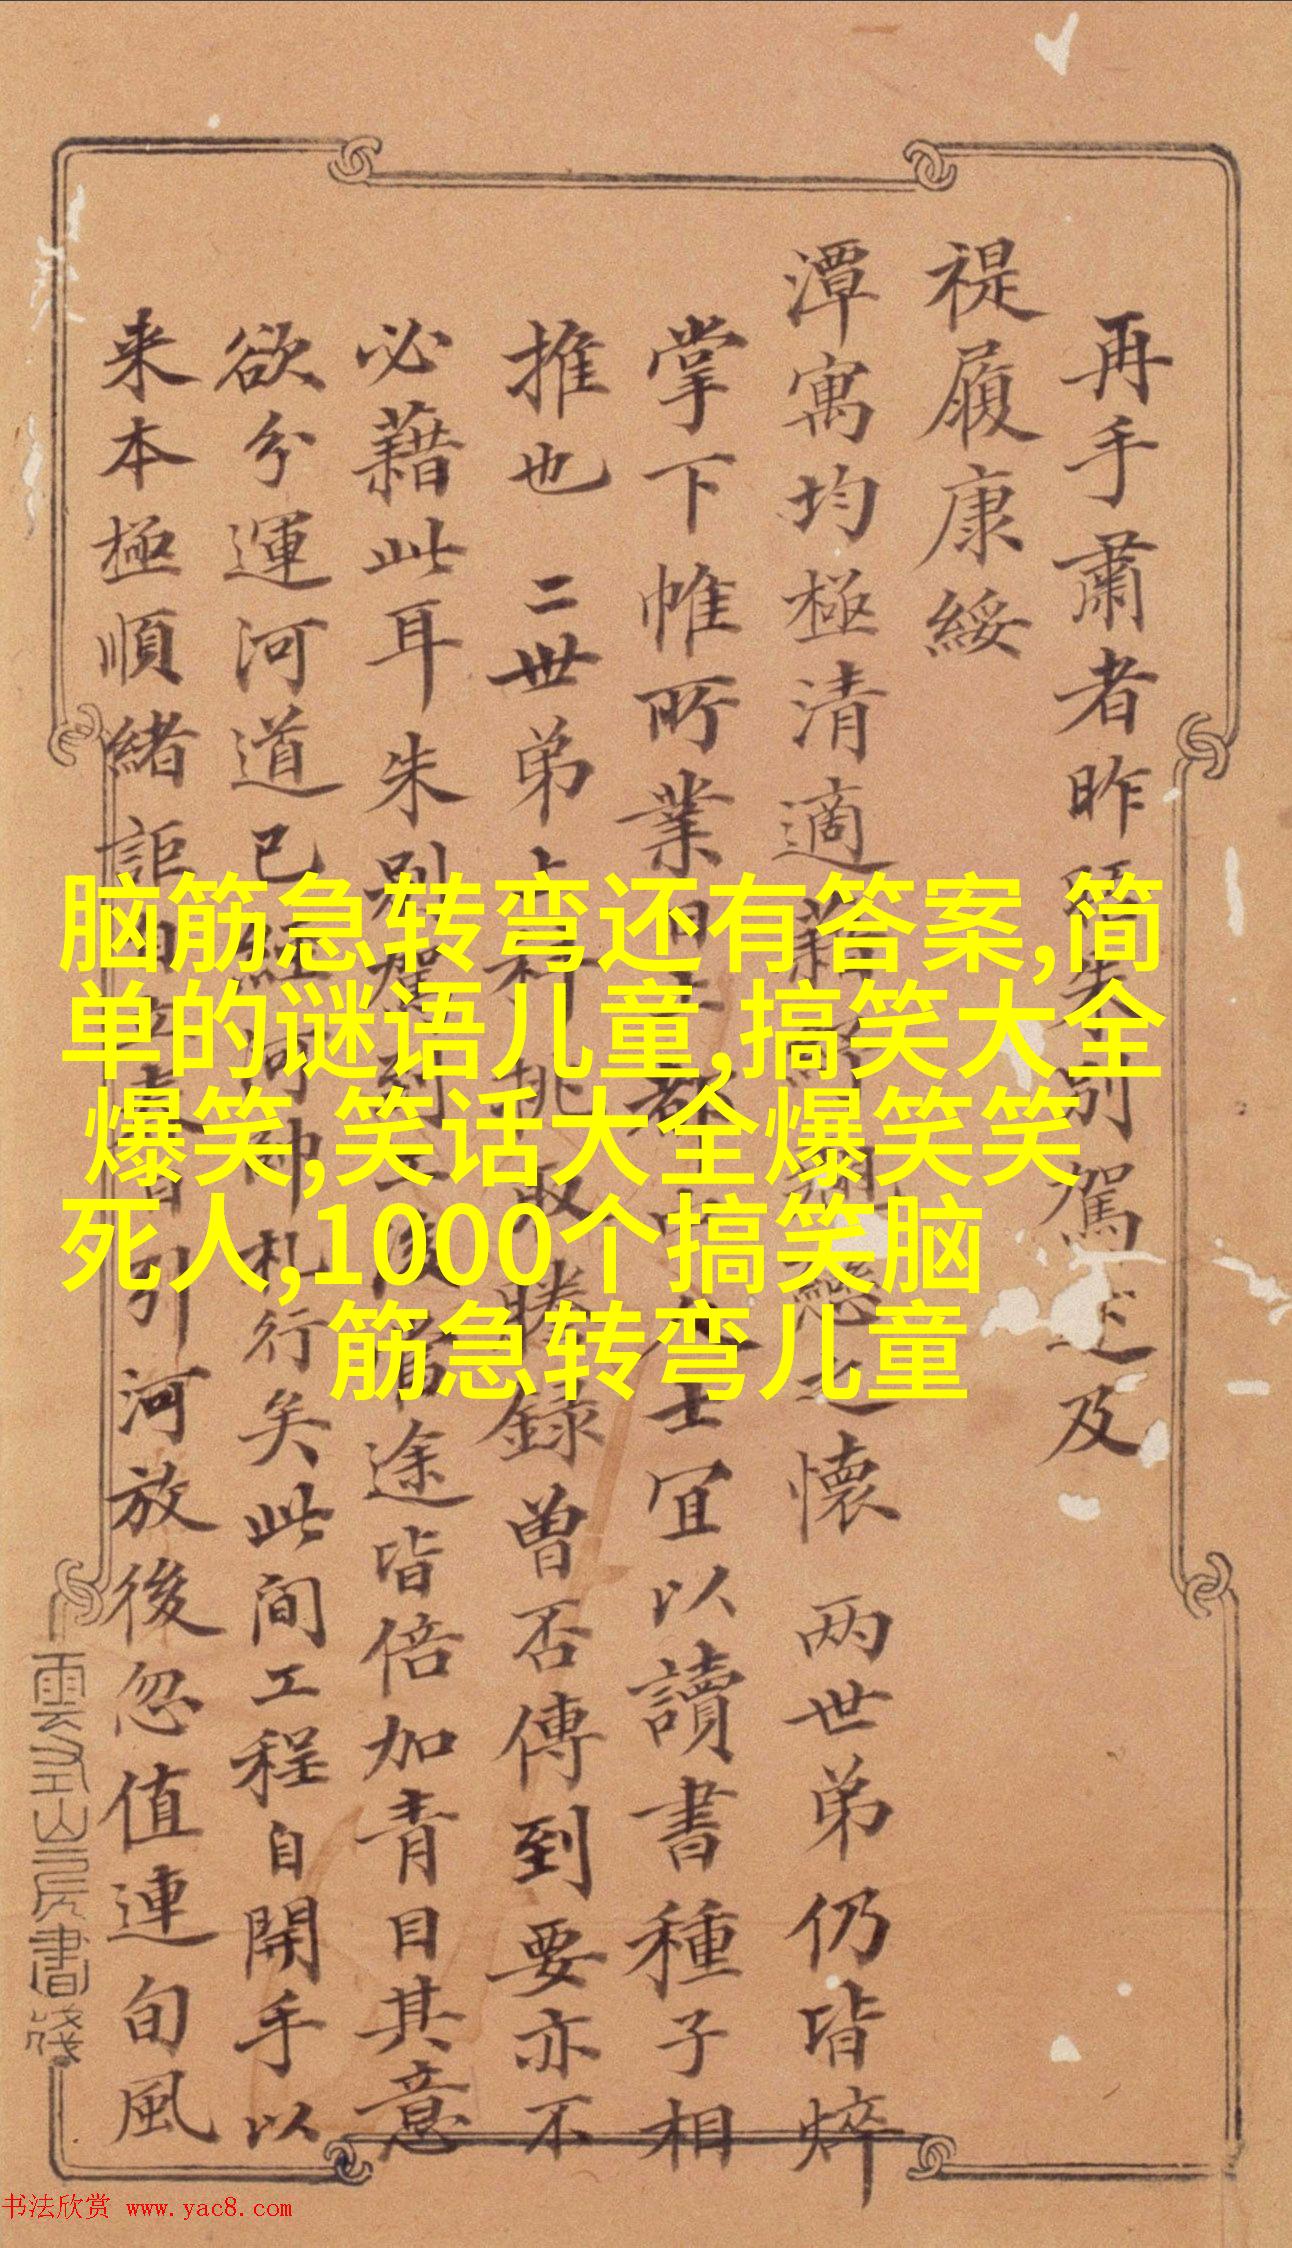 再手肅者昨
別駕述及
禔履康綏
潭寓均極清適藉
懸之懷兩世弟仍皆焠
掌下帷所業
士宜以讀書種子相
推也二世弟
挑取謄錄曾否傳到要亦不
必藉此耳朱別駕到工後
途皆倍加青目其意
欲分運河道已經
河帥札行矣此間工程自開手以
来本極順緒詎
引河放後忽值連旬風
雲左山房書箋
脑筋急转弯还有答案,简
单的谜语儿童,搞笑大全
爆笑,笑话大全爆笑笑
死人,1000个搞笑脑
筋急转弯儿童
书法欣赏 www.yac8.com